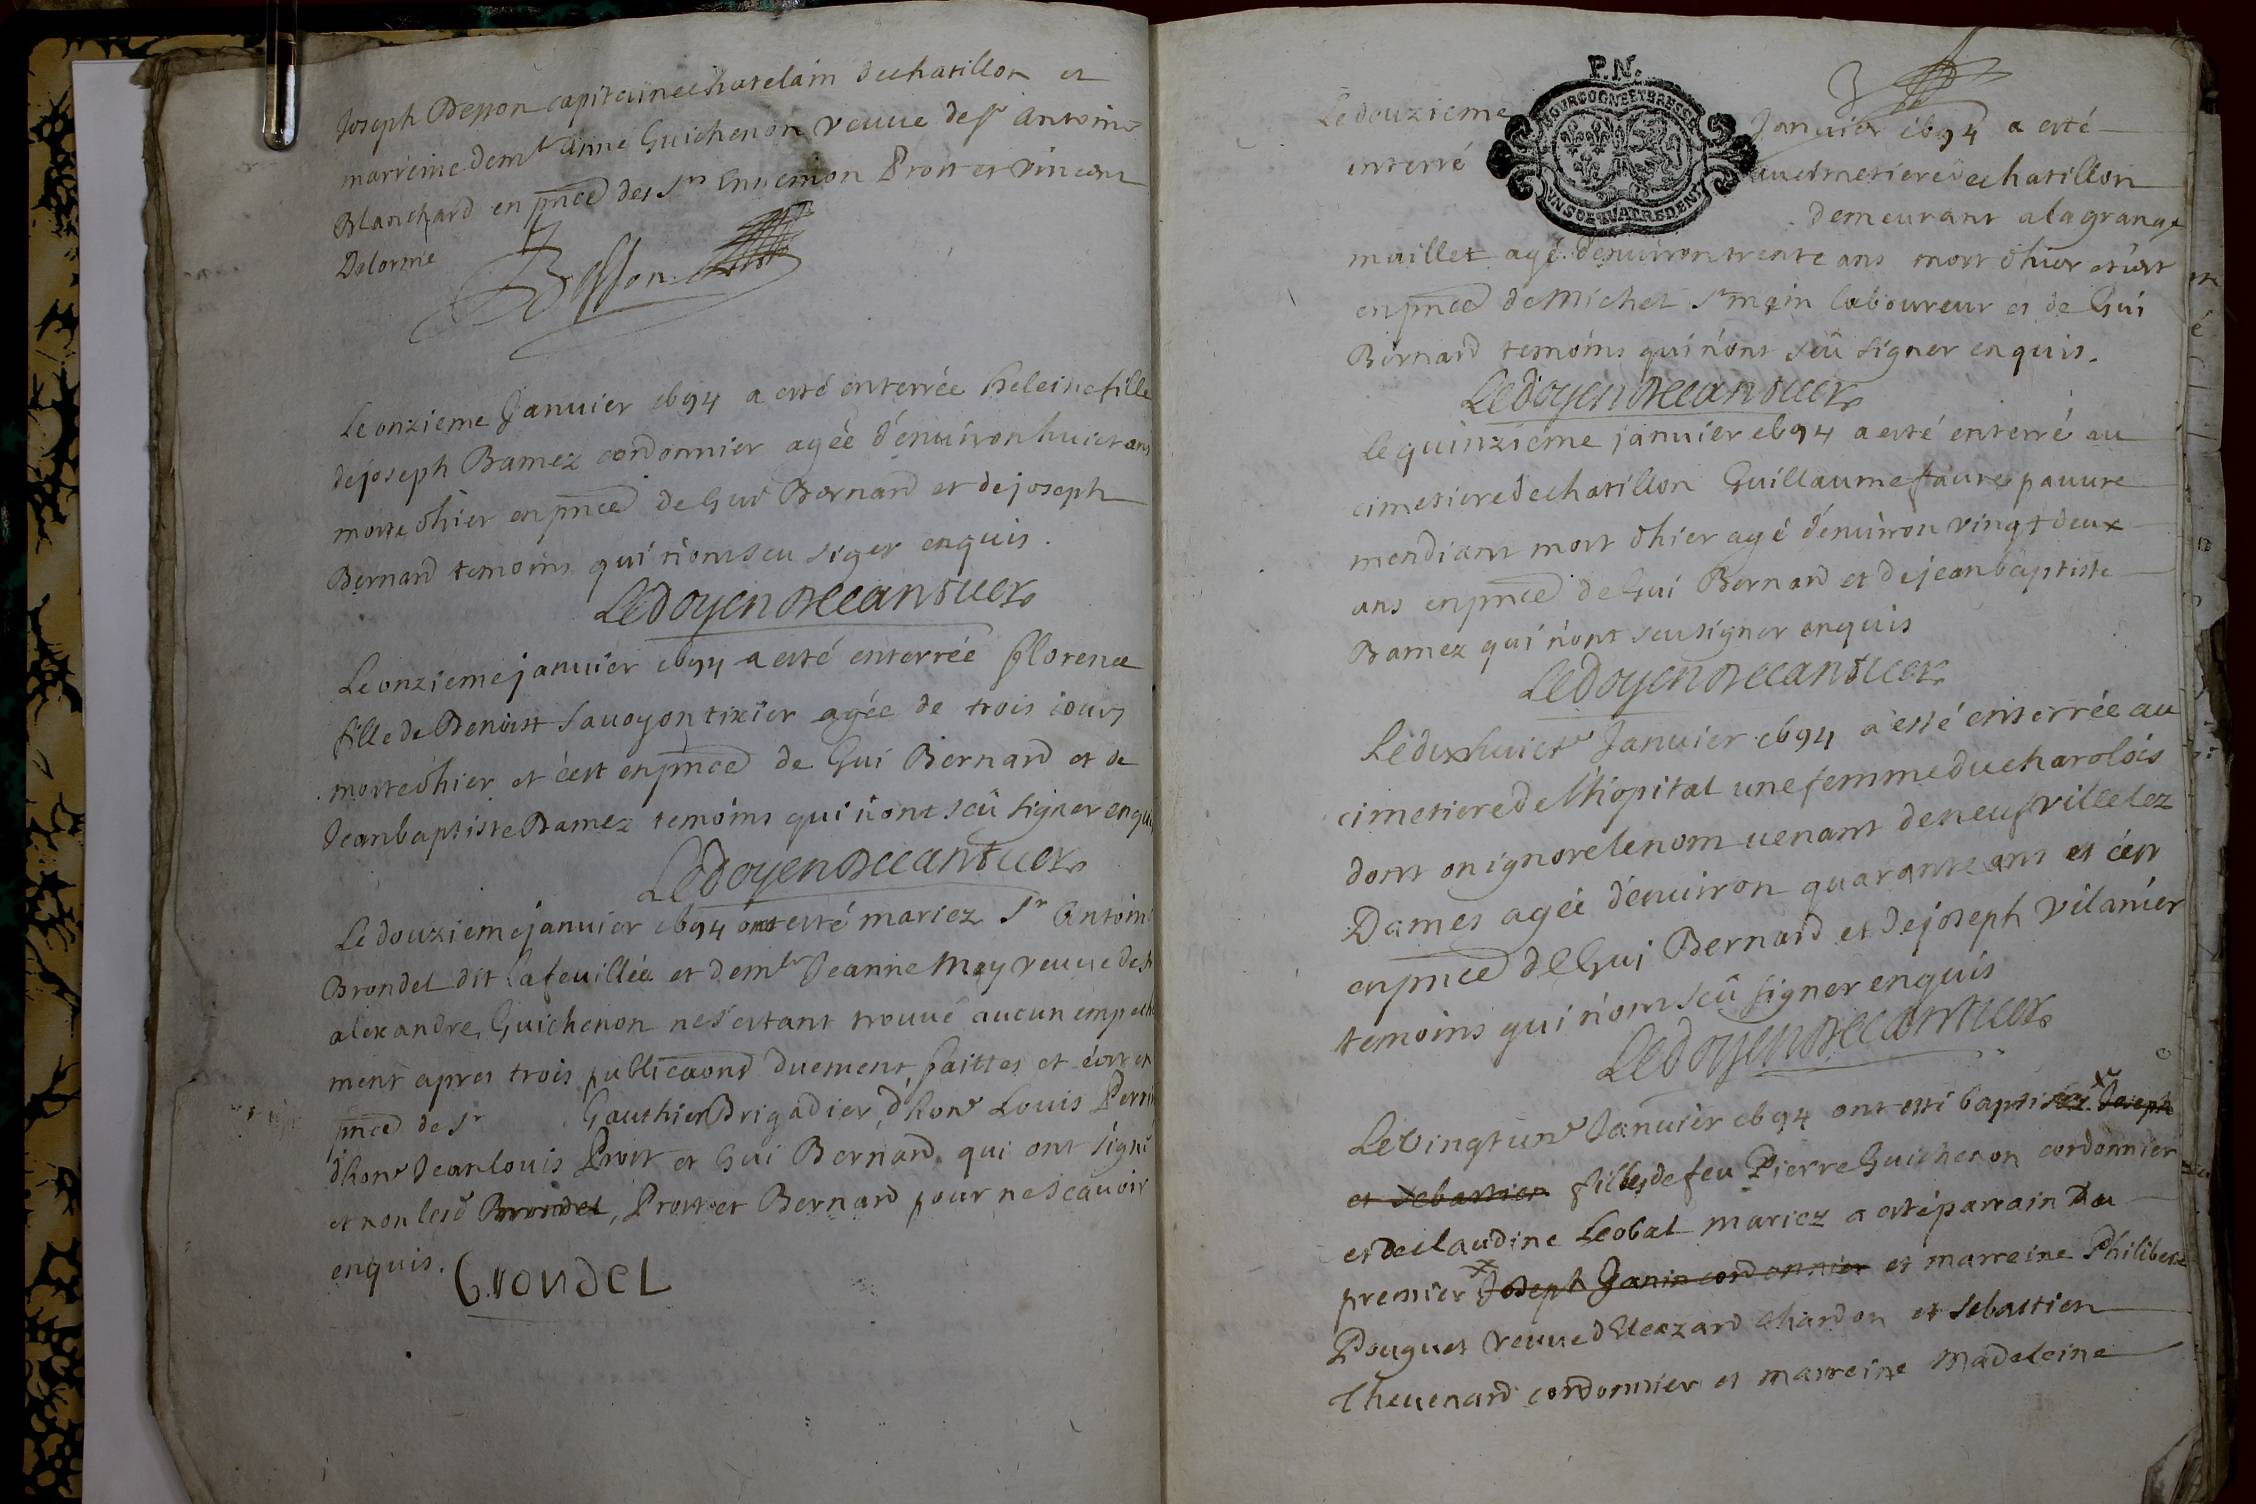 Joseph Besson capitaine chatelain de chatillon et
marreine dem.lle anne Guichenon veuve de s.r antoine
Blanchard en pnce des s.rs Ennemon Prost et vincent
Delorme
Besson
Le onzieme Janvier 1694 a esté enterrée heleine fille
de joseph Bamez cordonnier agée d'environ huict ans
morte d'hier en pnce de Gui Bernard et de joseph
Bernard temoins qui n'ont seu siger enquis.
Le doyen decanduer
Le onzieme janvier 1694 a esté enterrée florence
fille de Benoist Savoyon tixier agée de trois jours
morte d'hier et c'est en pnce de Gui Bernard et de
Jean baptiste Bamez temoins qui n'ont seu signer enquis
Le doyen decanduer
Le douzieme janvier 1694 ont esté mariez S.r Antoine
Brondel dit Lafeuillée et dem.lle Jeanne May veuve de s.r
alexandre Guichenon ne s'estant trouvé aucun empeche
ment apres trois publicaons duement faittes et c'est en
pnce de S.r Gauthier Brigadier, d'hon.e Louis Perrin
d'hon.e Jean louis Prost et Gui Bernard qui ont signé
et non lesd Brondel, Prost et Bernard pour ne scavoir
enquis.
Grondel
P.N.
BOURGOGNE ET BRESSE
Le douzieme Janvier 1694 a esté
enterré au cimetiere de chatillon
demeurant a la grange
maillet agé d'environ trente ans mort d'hier et c'est
en pnce de Michel S.t main laboureur et de Gui
Bernard temoins qui n'ont seu signer enquis.
Le doyen decanduer
Le quinzieme janvier 1694 a esté enterré au
cimetiere de chatillon Guillaume faure pauvre
mendiant mort d'hier agé d'environ vingt deux
ans en pnce de Gui Bernard et de jean baptiste
Bamez qui n'ont seu signer enquis
Le doyen decanduer
Le dix huict.e Janvier 1694 a esté enterrée au
cimetiere de l'hopital une femme du charolois
dont on ignore le nom venant de neufville lez
Dames agée d'environ quarante ans et c'est
en pnce de Gui Bernard et de joseph vilanier
temoins qui n'ont seu signer enquis
Le doyen decanduer
Le vingt un.e Janvier 1694 ont esté baptisez Joseph
et Sebastien filles de feu Pierre Guichenon cordonnier
et de claudine Leobal mariez a esté parrain Du
premier Joseph Janin cordonnier et marreine Philiberte
Pouguet veuve d'Eleazard chardon et sebastien
Thevenard cordonnier et marreine Madeleine